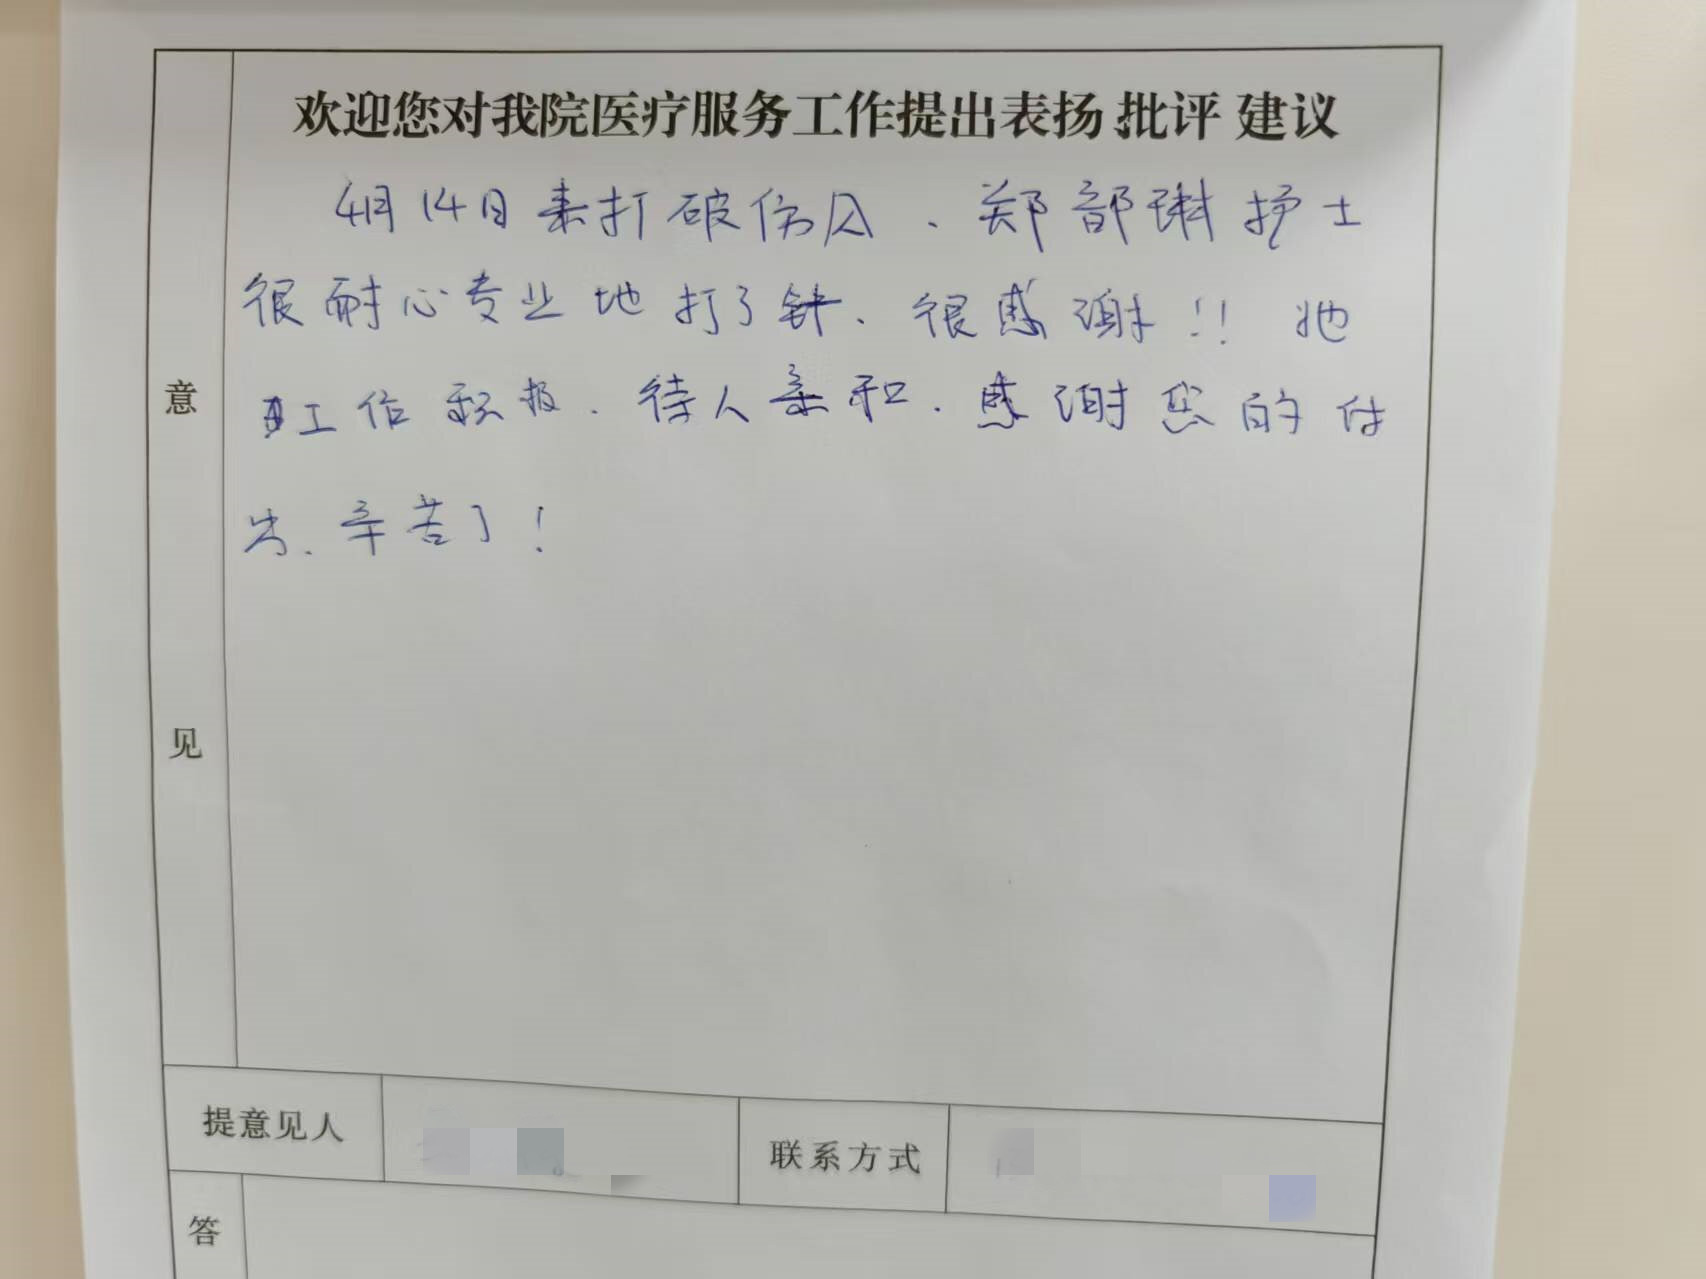 欢迎您对我院医疗服务工作提出表扬 批评 建议
4月14日来打破伤风、郑部琳护士
很耐心专业地打了针、很感谢!! 她
工作积极、待人亲和、感谢您的付
出、辛苦了!
意
见
提意见人
联系方式
答